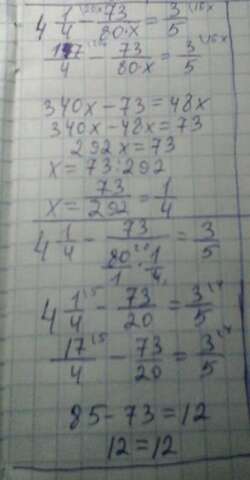 4 1/4 - 73/80·x = 3/5
17/4 - 73/80·x = 3/5
340x - 73 = 48x
340x - 48x = 73
292x = 73
x = 73 : 292
x = 73/292 = 1/4
4 1/4 - 73/(80/1 · 1/4) = 3/5
4 1/4 - 73/20 = 3/5
17/4 - 73/20 = 3/5
85 - 73 = 12
12 = 12